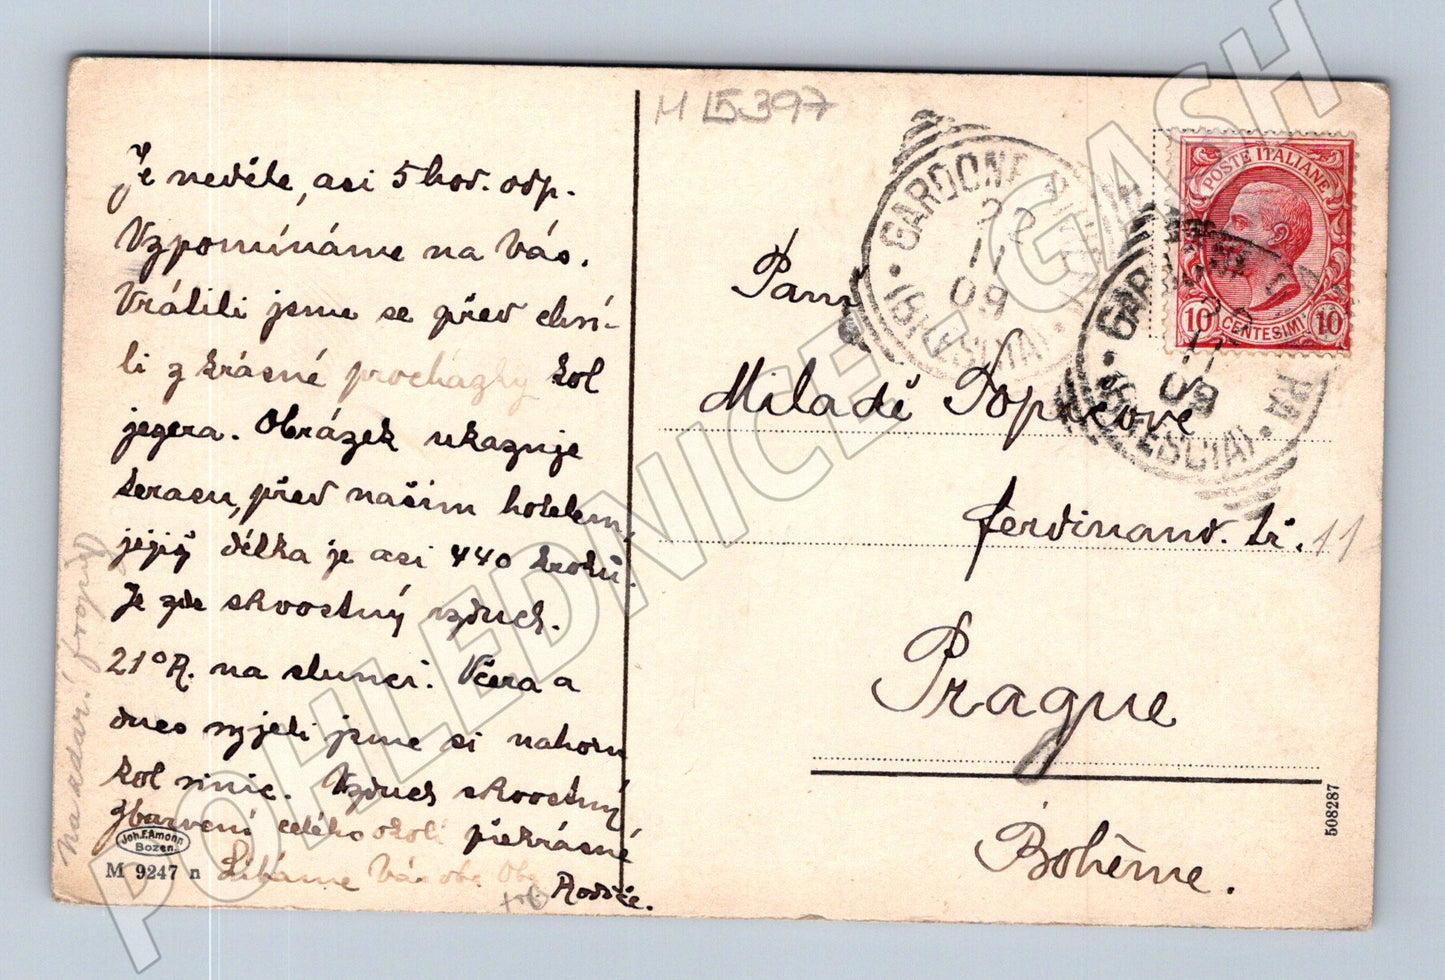 M 15397
Je neděle, asi 5 hod. odp.
Vzpomínáme na Vás.
Vrátili jsme se před chví-
li z krásné procházky kol
jezera. Obrázek ukazuje
terasu, před naším hotelem,
její délka je asi 440 kroků.
Je zde skvostný vzduch.
21°R. na slunci. Včera a
dnes vyjeli jsme si nahoru
kol vinic. Vzduch skvostný
Zbarvení celého okolí překrásné
Líbáme Vás oba
Rodiče.
Joh. F. Amonn
Bozen.
M 9247 n
POSTE ITALIANE
10 CENTESIMI 10
GARDONE RIVIERA
22
11
09
(BRESCIA)
GARDONE RIVIERA
11
09
(BRESCIA)
Paní
Miladě Topičové
Ferdinand. tř. 11
Prague
Bohème.
508287
POHLEDNICE GASH